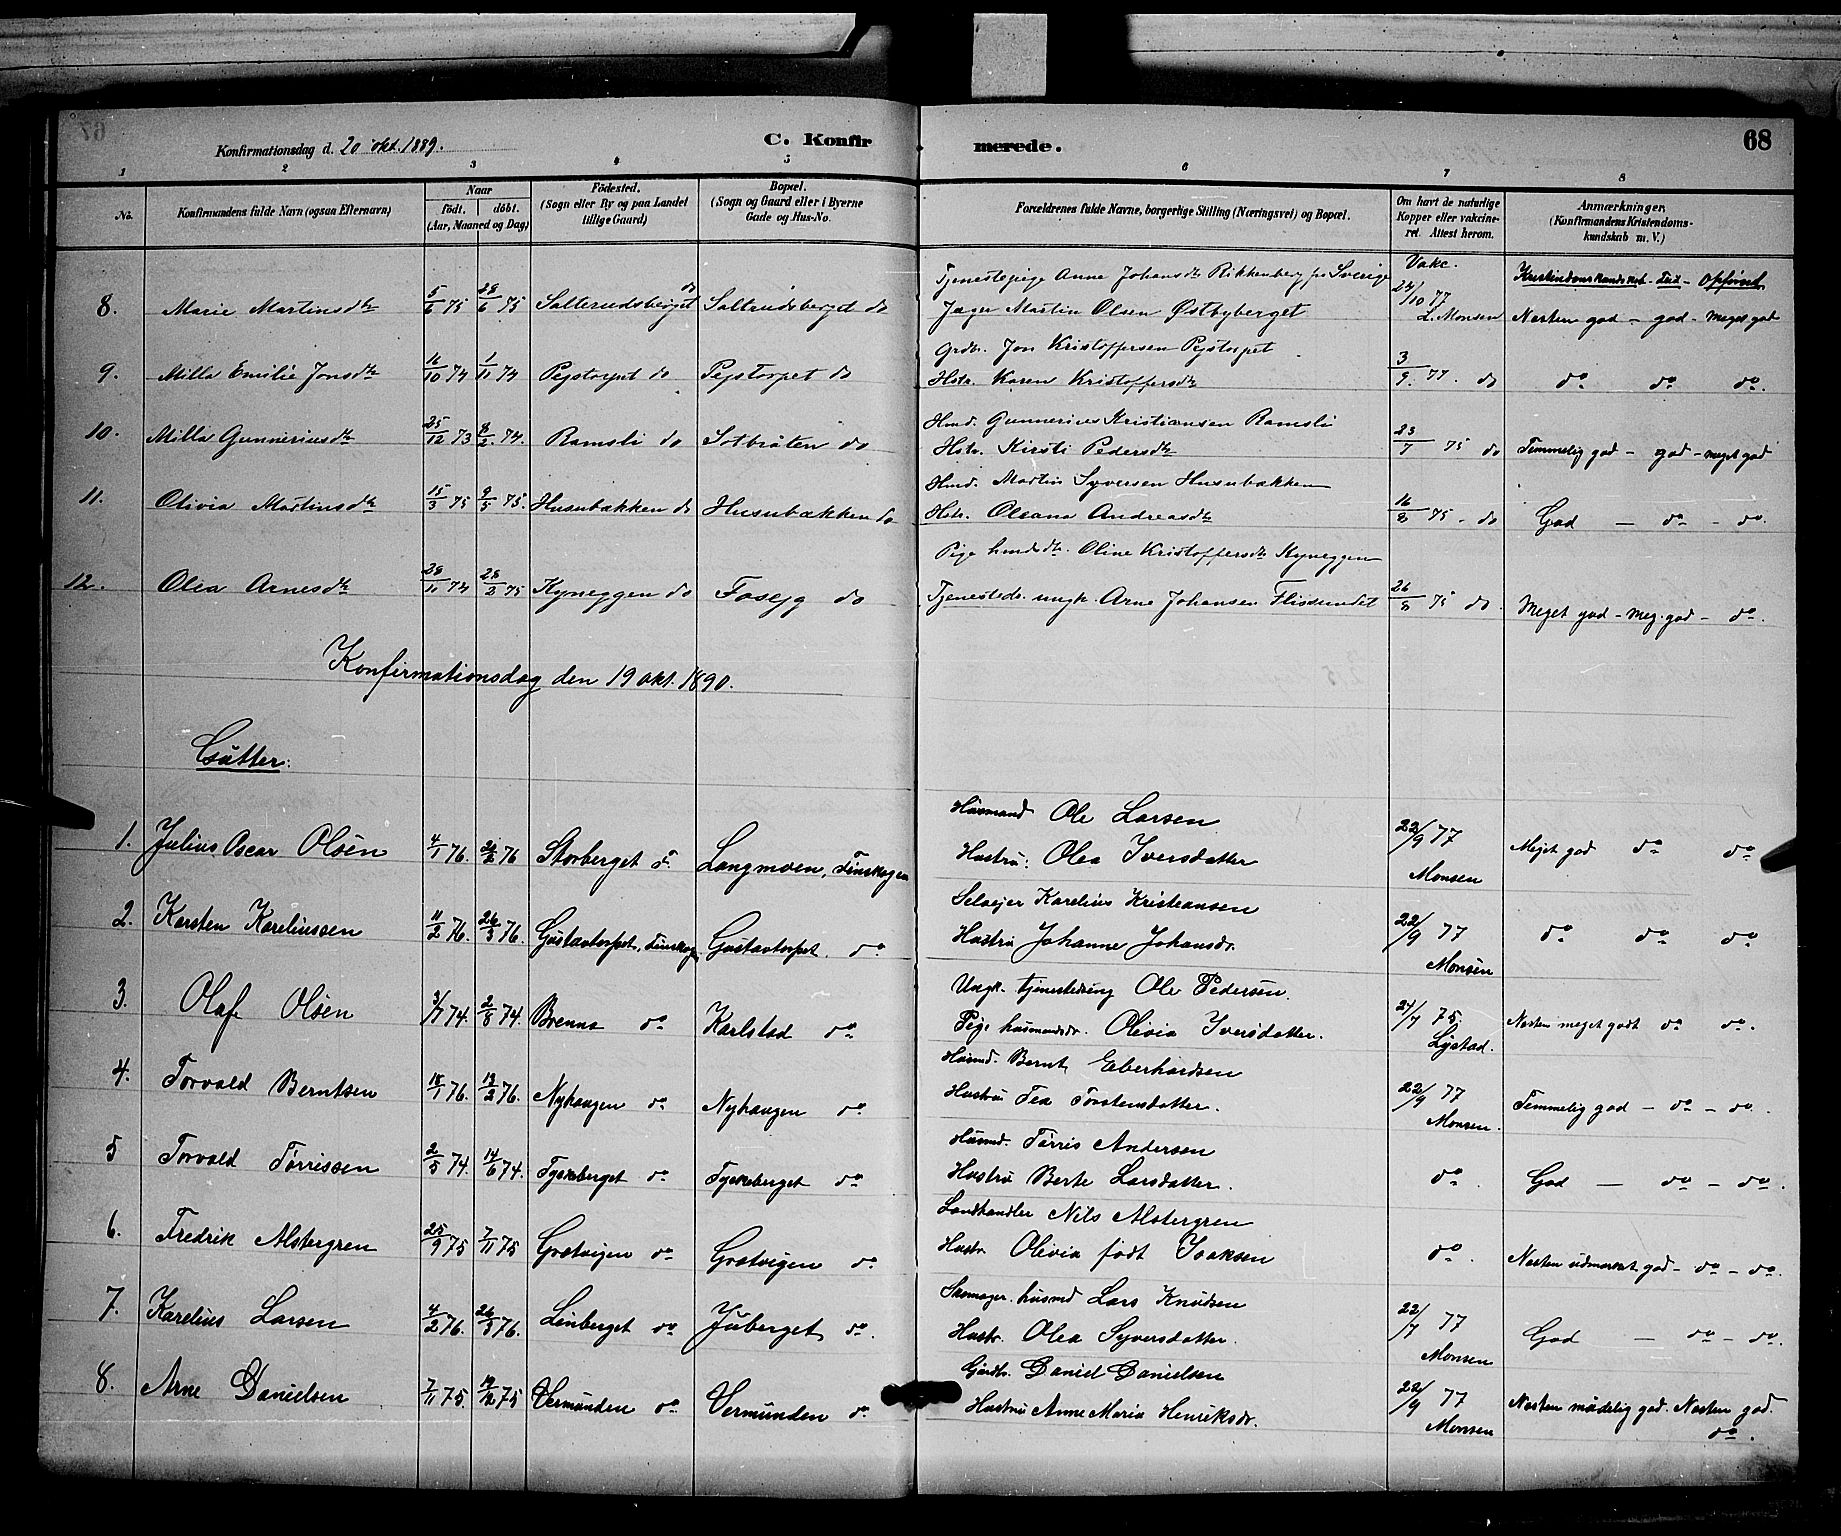 67
Konfirmationsdag d. 20 Okt. 1889.
C. Konfirmerede.
68
1 2 3 4 5 6 7 8
No.
Konfirmandens fulde Navn (ogsaa Efternavn)
Naar
født. døbt.
(Aar, Maaned og Dag)
Fødested.
(Sogn eller By og paa Landet
tillige Gaard)
Bopæl.
(Sogn og Gaard eller i Byerne
Gade og Hus-No.
Forældrenes fulde Navne, borgerlige Stilling (Næringsvei) og Bopæl.
Om havt de naturlige
Kopper eller vakcine-
ret. Attest herom.
Anmærkninger.
(Konfirmandens Kristendoms-
kundskab m. V.)
Tjenestepige Anne Johansdtr Rikkenberg fra Sverige Vakc. Kristendomskundskab - Flid - Opførsel
8. Marie Martinsdtr 5/6 75 28/6 75 Salterudsberget do Saltrudsberget do Jæger Martin Olsen Østbyberget 24/10 77 L. Monsen Nesten god - god - meget god
Grdbr. Jon Kristoffersen Pejstorpet
9. Milla Emilie Jonsdtr 16/10 74 1/11 74 Pejstorpet do Pejstorpet do Hstr. Karen Kristoffersdtr 3/9 77. do do do do.
Hmd. Gunnerius Kristiansen Ramsli
10. Milla Gunneriusdtr 25/12 73 8/2 74. Ramsli do Sotbråten do Hstr. Kirsti Pedersdtr 23/7 75 do Temmelig god - god - meget god
Hmd. Martin Syversen Husubækken
11. Olivia Martinsdtr 15/3 75 9/5 75. Husubækken do Husubækken do Hstr. Oleana Andreasdtr 16/8 75 - do God - do - do.
Pige hmdsdtr. Oline Kristoffersdtr Kyneggen
12. Olea Arnesdtr 28/11 74 28/2 75 Kyneggen do Fasejg do Tjenestedr. ungk. Arne Johansen Flissundet 26/8 75 do. Meget god - Meg. god - do.
Konfirmationsdag den 19 Okt. 1890.
Gutter:
Husmand Ole Larsen
1. Julius Oscar Olsen 4/1 76. 76 Storberget F. Langmoen, Finskogen Hustru: Olea Iversdatter 22/9 77 Monsen Meget god do do
Selvejer Karelius Kristiansen
2. Karsten Kareliussen 11/2 76. 26/3 76. Gustavtorpet, Finskogen Gustavtorpet. do Hustru Johanne Johansdr. 22/9 77 Monsen do do do
Ungk. tjenestedreng Ole Pedersen.
3. Olaf Olsen 74. 2/8 74. Brenna do Karlstad do Pige husmandsdr. Olivia Iversdatter. 24/7 75 Lystad. Nesten meget godt do do.
Husmd. Bernt Eberhardsen
4. Torvald Berntsen 18/1 76. 13/2 76. Nyhaugen do Nyhaugen do Hustru Tea Torstensdatter. 22/9 77 Monsen. Temmelig god - do - do.
Husmd. Tørris Andersen
5 Torvald Tørrissen 2/5 74. 14/6 74. Tyskeberget do Tyskeberget do Hustru Berte Larsdatter. do. God - do - do.
Landhandler Nils Alstergren
6. Fredrik Alstergren 25/9 75 7/11 75 Grøtvigen do Grøtvigen do Hustr. Olivia født Isaksen do. Nesten udmærket god - do - do.
Skomager. husmd Lars Knudsen
7. Karelius Larsen 4/2 76. 26/3 76. Linberget do Juberget do. Hustr. Olea Syversdatter. 22/7 77 Monsen God - do - do.
Gårdbr. Daniel Danielsen
8. Arne Danielsen 7/11 75. 19/12 75 Vermunden do Vermunden do Hustru Anne Maria Henriksdr. 22/9 77 Monsen Nesten mådelig god. Nesten god.
do.